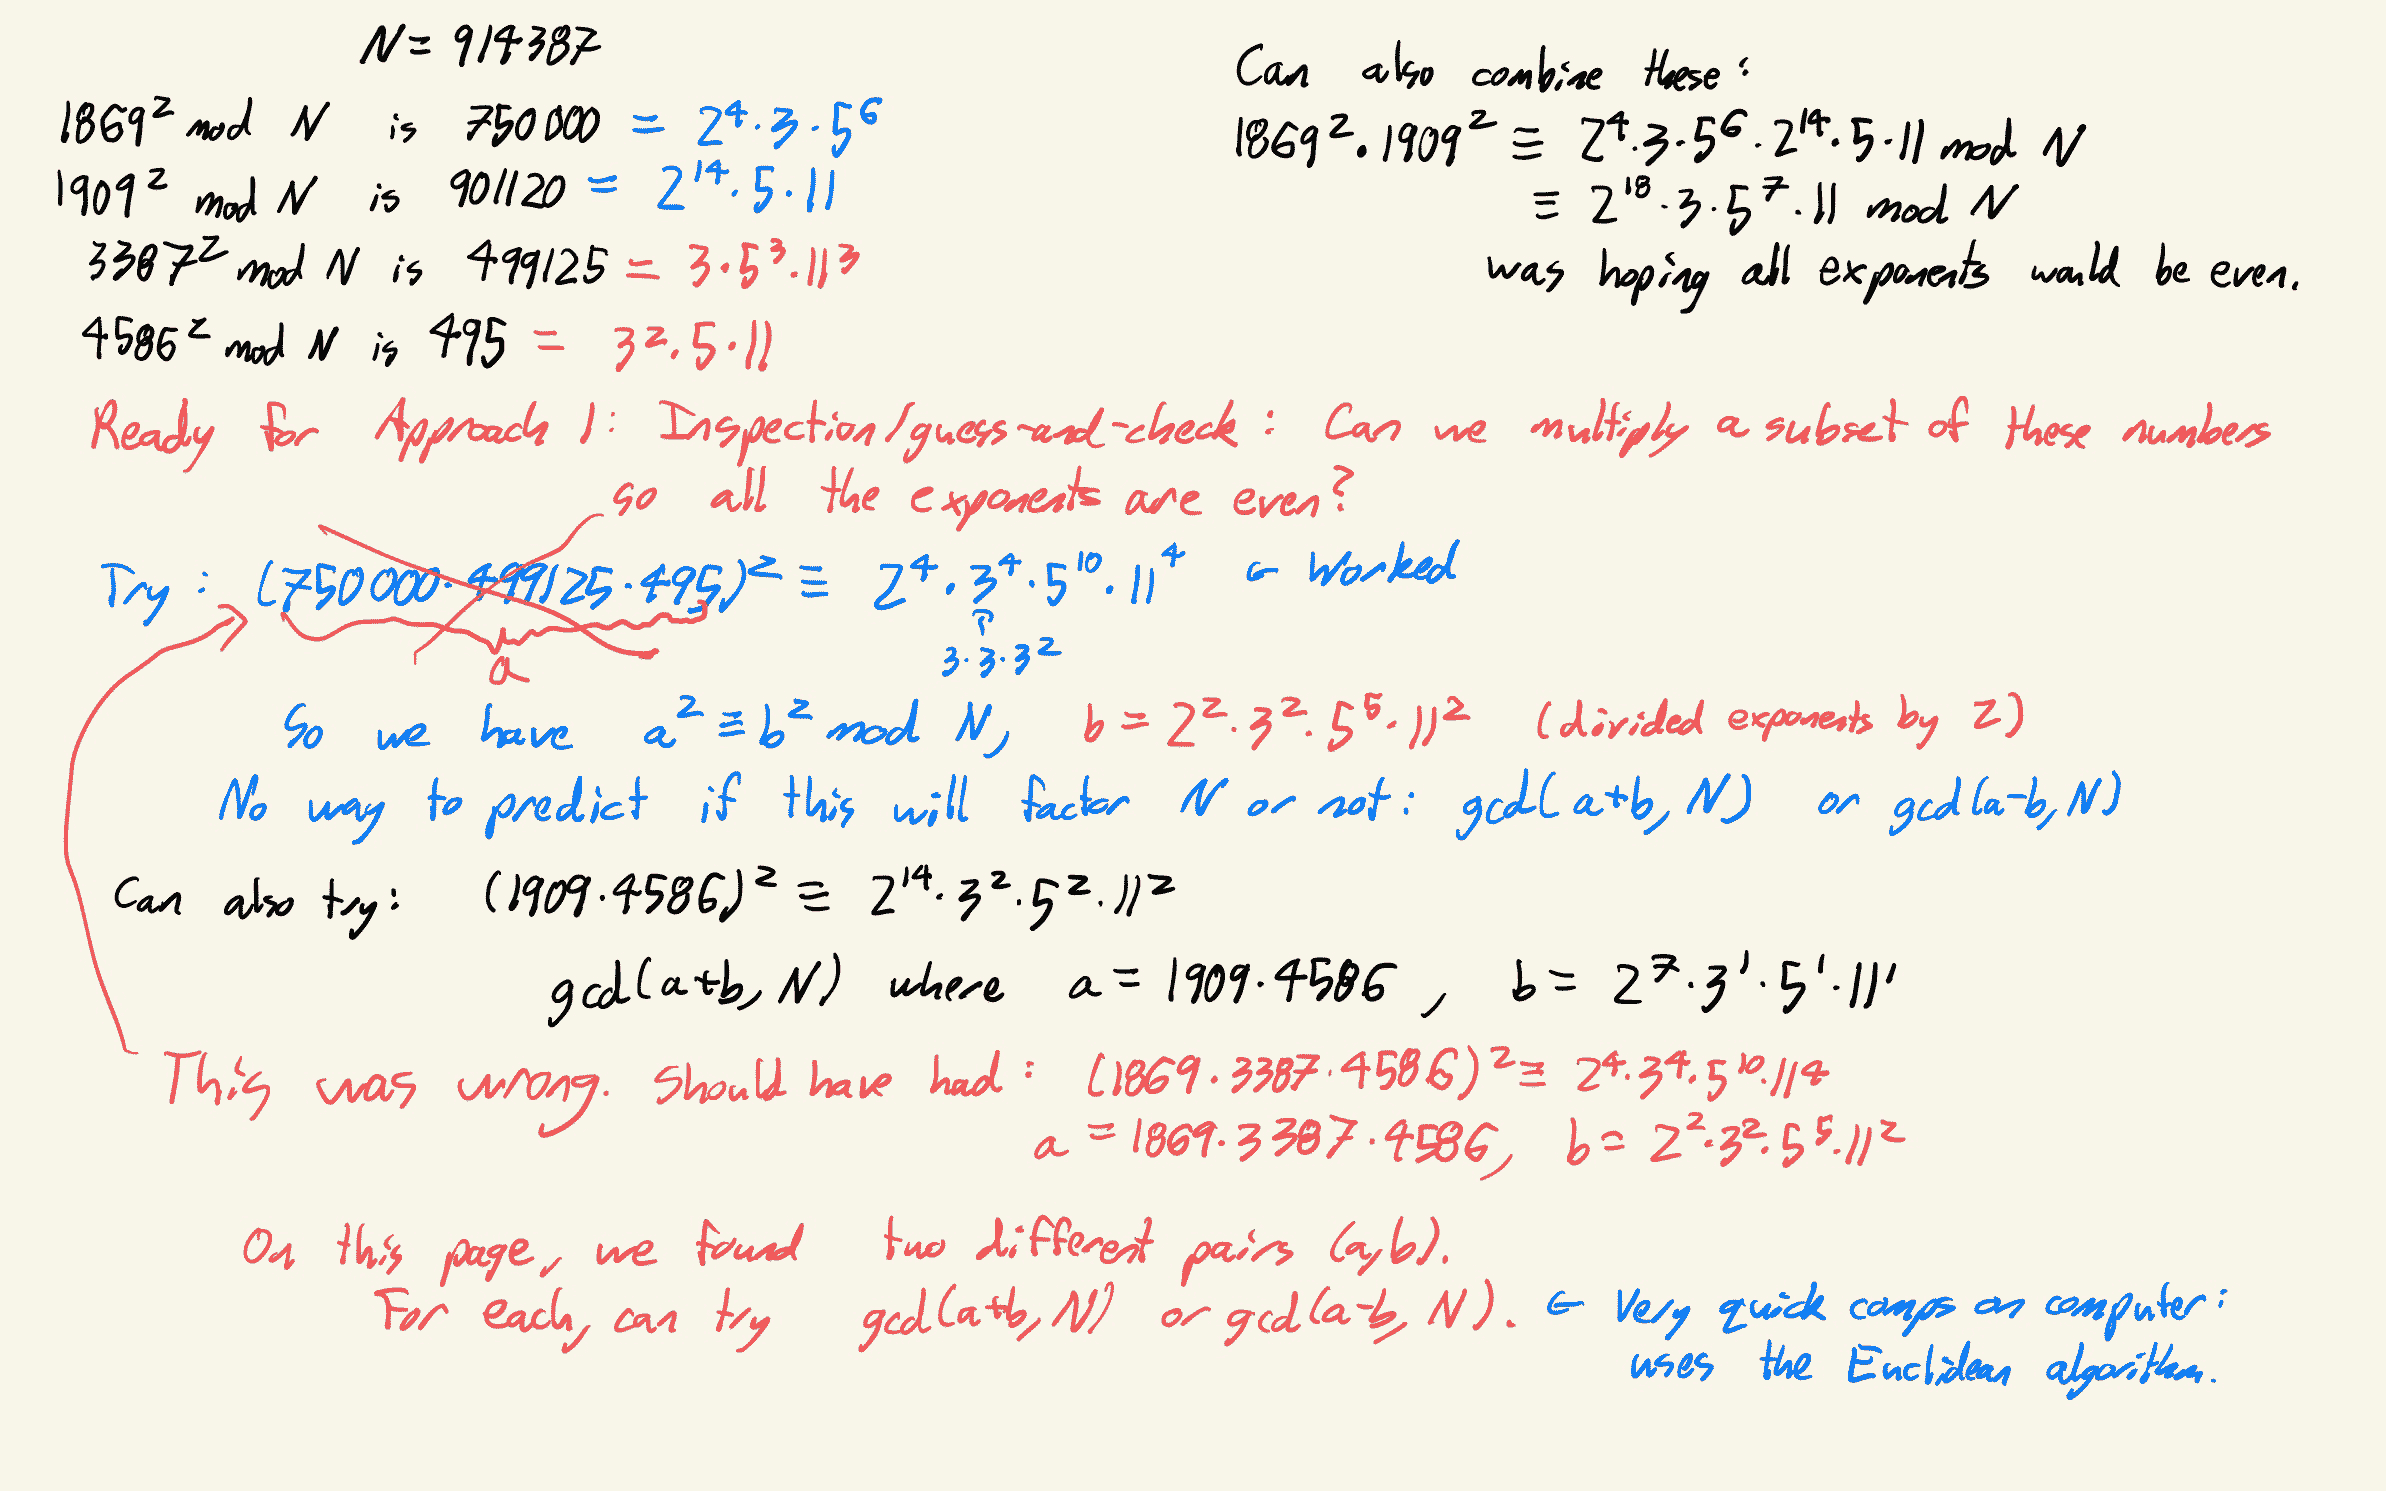 N = 914387
1869² mod N is 750000 = 2⁴·3·5⁶
1909² mod N is 901120 = 2¹⁴·5·11
3387² mod N is 499125 = 3·5³·11³
4586² mod N is 495 = 3²·5·11
Can also combine these:
1869²·1909² ≡ 2⁴·3·5⁶·2¹⁴·5·11 mod N
≡ 2¹⁸·3·5⁷·11 mod N
was hoping all exponents would be even.
Ready for Approach 1: Inspection/guess-and-check: Can we multiply a subset of these numbers
so all the exponents are even?
Try: (750000·499125·495)² ≡ 2⁴·3⁴·5¹⁰·11⁴ ← Worked
a
3·3·3²
So we have a² ≡ b² mod N, b = 2²·3²·5⁵·11² (divided exponents by 2)
No way to predict if this will factor N or not: gcd(a+b, N) or gcd(a-b, N)
Can also try: (1909·4586)² ≡ 2¹⁴·3²·5²·11²
gcd(a+b, N) where a = 1909·4586, b = 2⁷·3¹·5¹·11¹
This was wrong. Should have had: (1869·3387·4586)² ≡ 2⁴·3⁴·5¹⁰·11⁴
a = 1869·3387·4586, b = 2²·3²·5⁵·11²
On this page, we found two different pairs (a,b).
For each, can try gcd(a+b, N) or gcd(a-b, N). ← Very quick comps on computer:
uses the Euclidean algorithm.